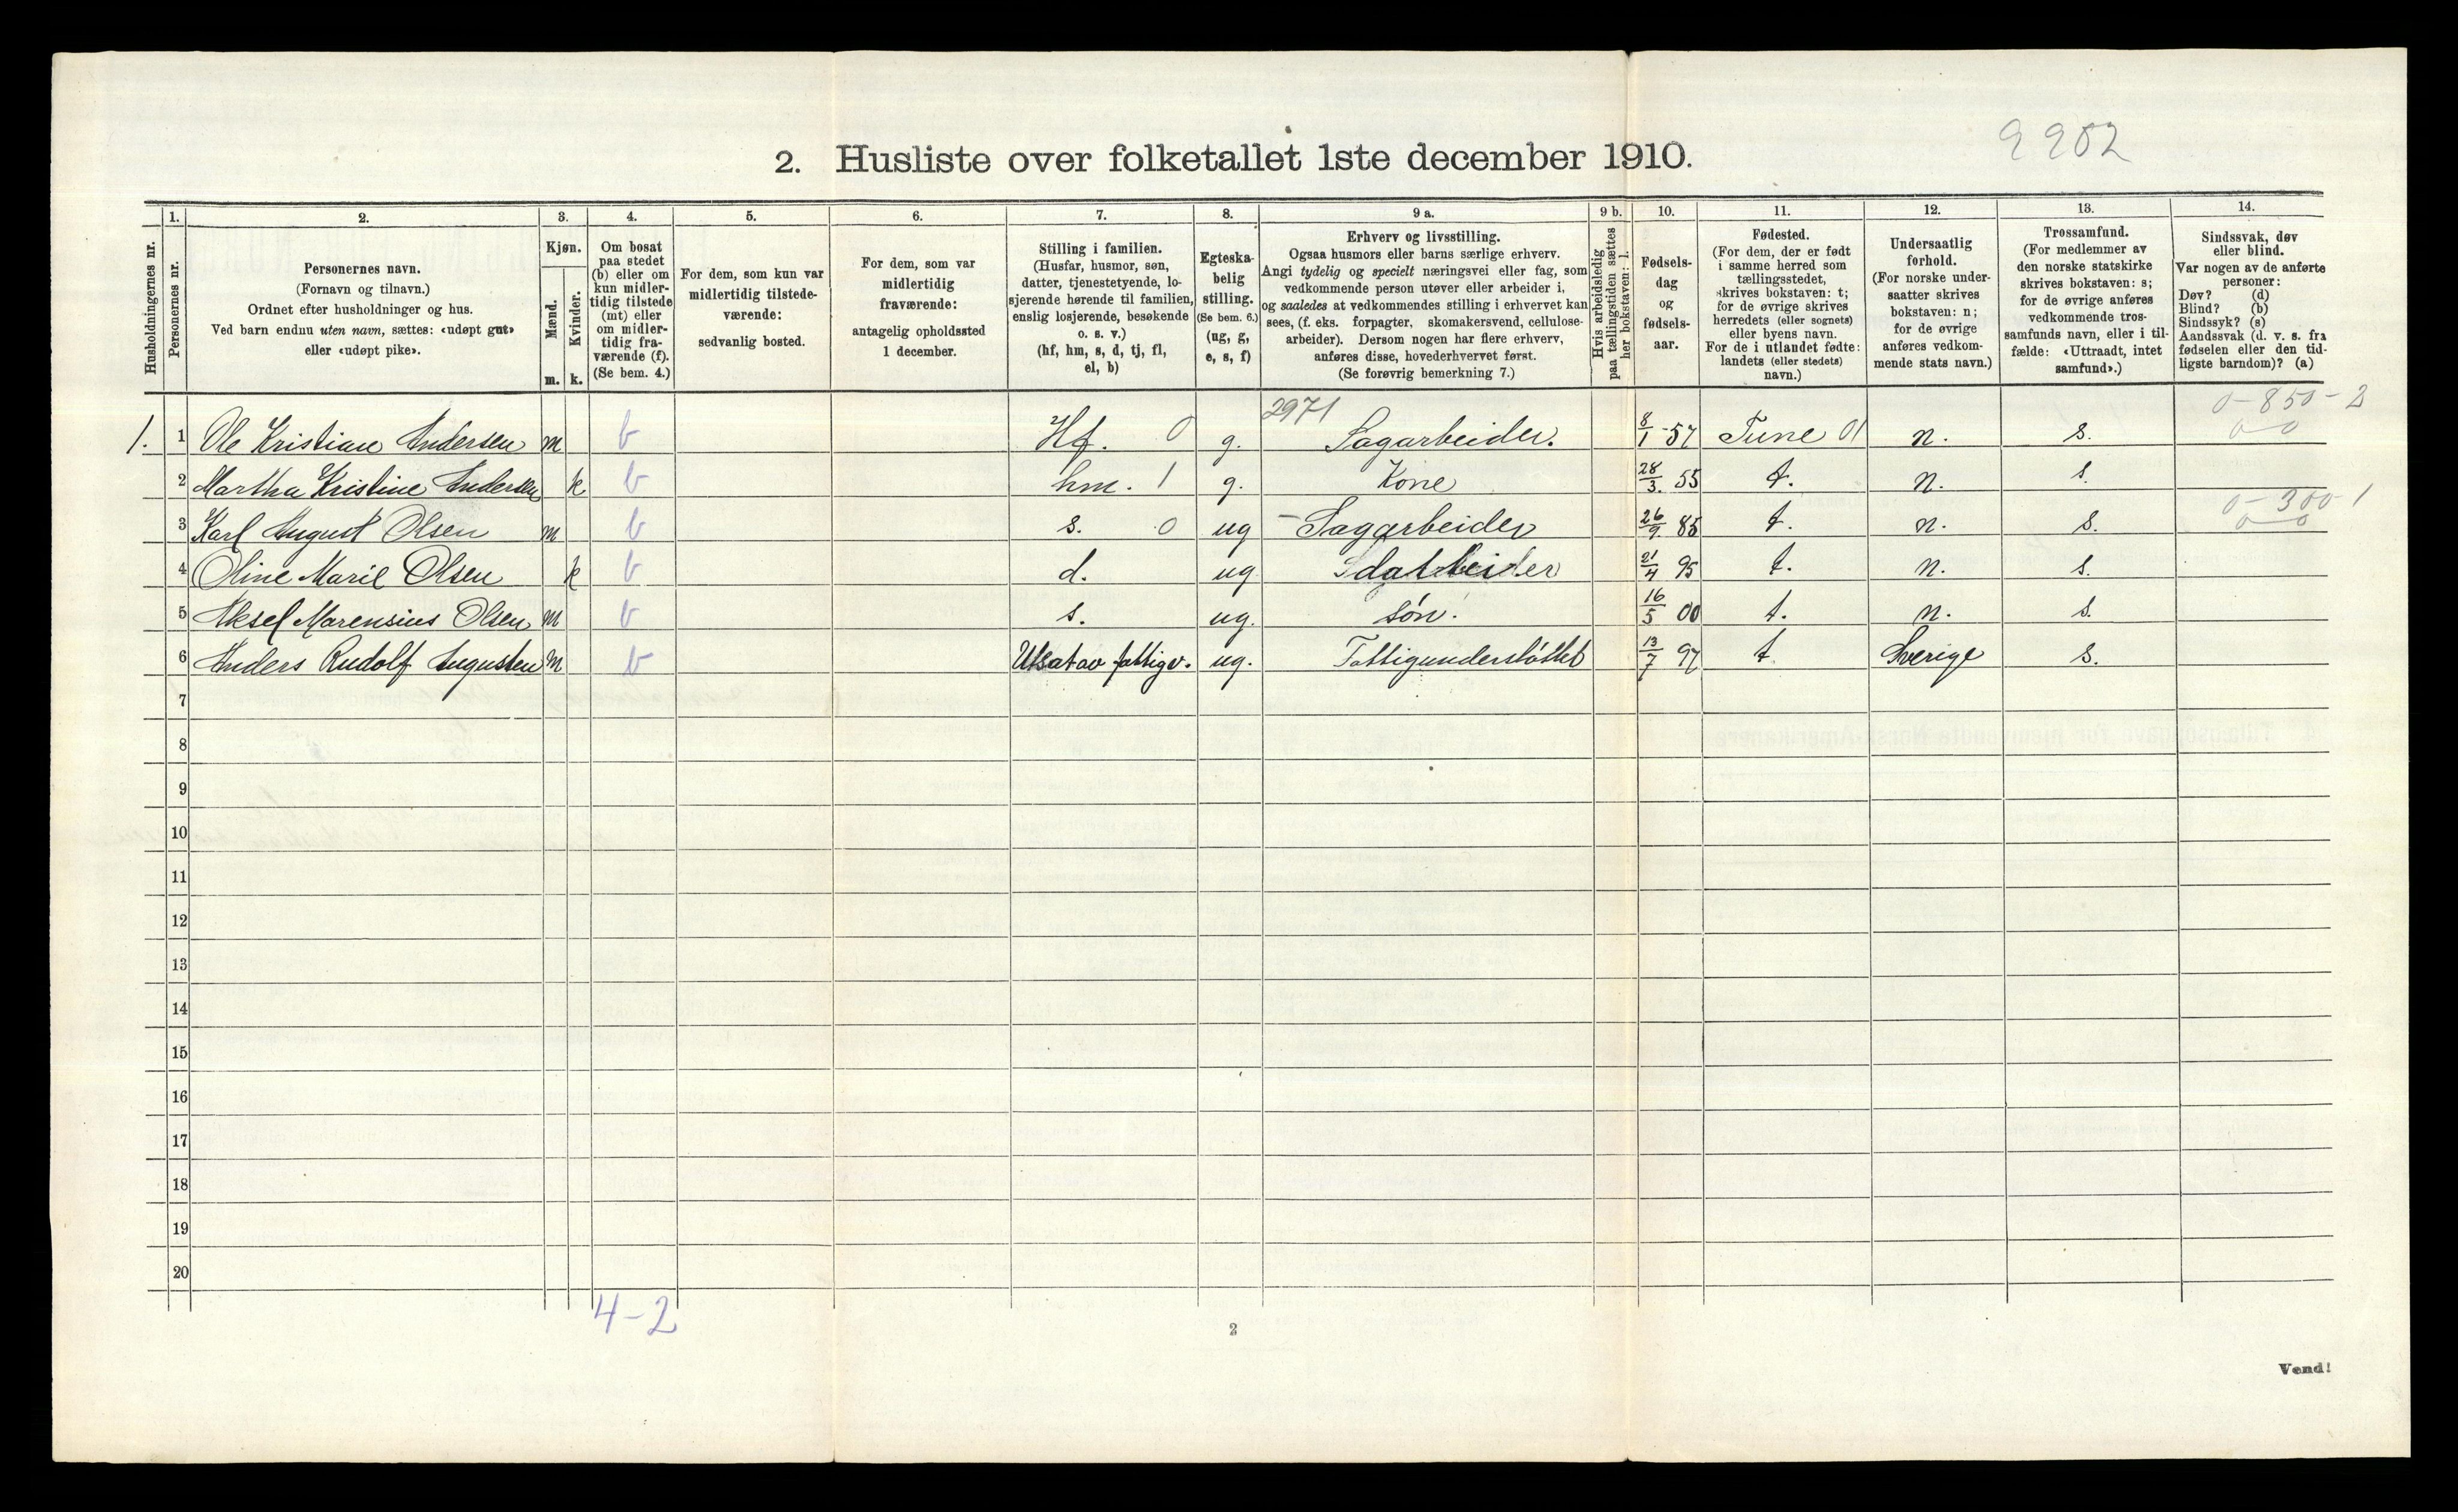 9902
2. Husliste over folketallet 1ste december 1910.
Husholdningernes nr.
1.
Personernes nr.
2.
Personernes navn.
(Fornavn og tilnavn.)
Ordnet efter husholdninger og hus.
Ved barn endnu uten navn, sættes: «udøpt gut»
eller «udøpt pike».
3.
Kjøn.
Mænd.
Kvinder.
m. k.
4.
Om bosat
paa stedet
(b) eller om
kun midler-
tidig tilstede
(mt) eller
om midler-
tidig fra-
værende (f).
(Se bem. 4.)
5.
For dem, som kun var
midlertidig tilstede-
værende:
sedvanlig bosted.
6.
For dem, som var
midlertidig
fraværende:
antagelig opholdssted
1 december.
7.
Stilling i familien.
(Husfar, husmor, søn,
datter, tjenestetyende, lo-
sjerende hørende til familien,
enslig losjerende, besøkende
o. s. v.)
(hf, hm, s, d, tj, fl,
el, b)
8.
Egteska-
belig
stilling.
(Se bem. 6.)
(ug, g,
e, s, f)
9 a.
Erhverv og livsstilling.
Ogsaa husmors eller barns særlige erhverv.
Angi tydelig og specielt næringsvei eller fag, som
vedkommende person utøver eller arbeider i,
og saaledes at vedkommendes stilling i erhvervet kan
sees, (f. eks. forpagter, skomakersvend, cellulose-
arbeider). Dersom nogen har flere erhverv,
anføres disse, hovederhvervet først.
(Se forøvrig bemerkning 7.)
9 b.
Hvis arbeidsledig
paa tællingstiden sættes
her bokstaven: l.
10.
Fødsels-
dag
og
fødsels-
aar.
11.
Fødested.
(For dem, der er født
i samme herred som
tællingsstedet,
skrives bokstaven: t;
for de øvrige skrives
herredets (eller sognets)
eller byens navn.
For de i utlandet fødte:
landets (eller stedets)
navn.)
12.
Undersaatlig
forhold.
(For norske under-
saatter skrives
bokstaven: n;
for de øvrige
anføres vedkom-
mende stats navn.)
13.
Trossamfund.
(For medlemmer av
den norske statskirke
skrives bokstaven: s;
for de øvrige anføres
vedkommende tros-
samfunds navn, eller i til-
fælde: «Uttraadt, intet
samfund».)
14.
Sindssvak, døv
eller blind.
Var nogen av de anførte
personer:
Døv? (d)
Blind? (b)
Sindssyk? (s)
Aandssvak (d. v. s. fra
fødselen eller den tid-
ligste barndom)? (a)
2971 0-850-2
1. 1 Ole Kristian Andersen m b Hf. 0 g. Sagarbeider. 8/1 -57 Tune 01 n. s. 0-0
2 Martha Kristine Andersen k b hm. 1 g. Kone 28/3. 55 t. n. s.
0-300-1
3 Karl August Olsen m b s. 0 ug - Sagarbeider 26/9. 85 t. n. s. 0-0
4 Oline Marie Olsen k b d. ug 21/4 95 t. n. s.
5 Aksel Marensius Olsen m b s. ug. søn. 16/5 00 t. n. s.
6 Anders Rudolf Augusten m b Utsat av fattigv. ug. Fattigunderstøttet 13/7 97 t Sverige s.
7
8
9
10
11
12
13
14
15
16
17
18
19
20
4-2
2
Vend!